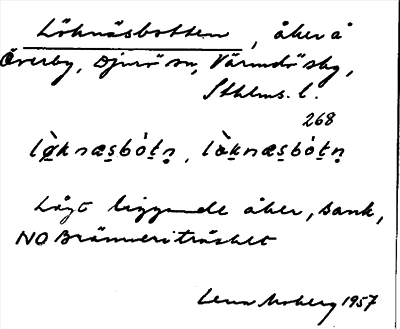 Löknäsbotten, åker å
Överby, Djurö sn, Värmdö sbg,
Sthlms. l.
268
lø̀knæsbòtn̥, lø̀knæsbòtn̥
Lågt liggande åker, sank,
NO Bränneriträsket
Lena Moberg 1957